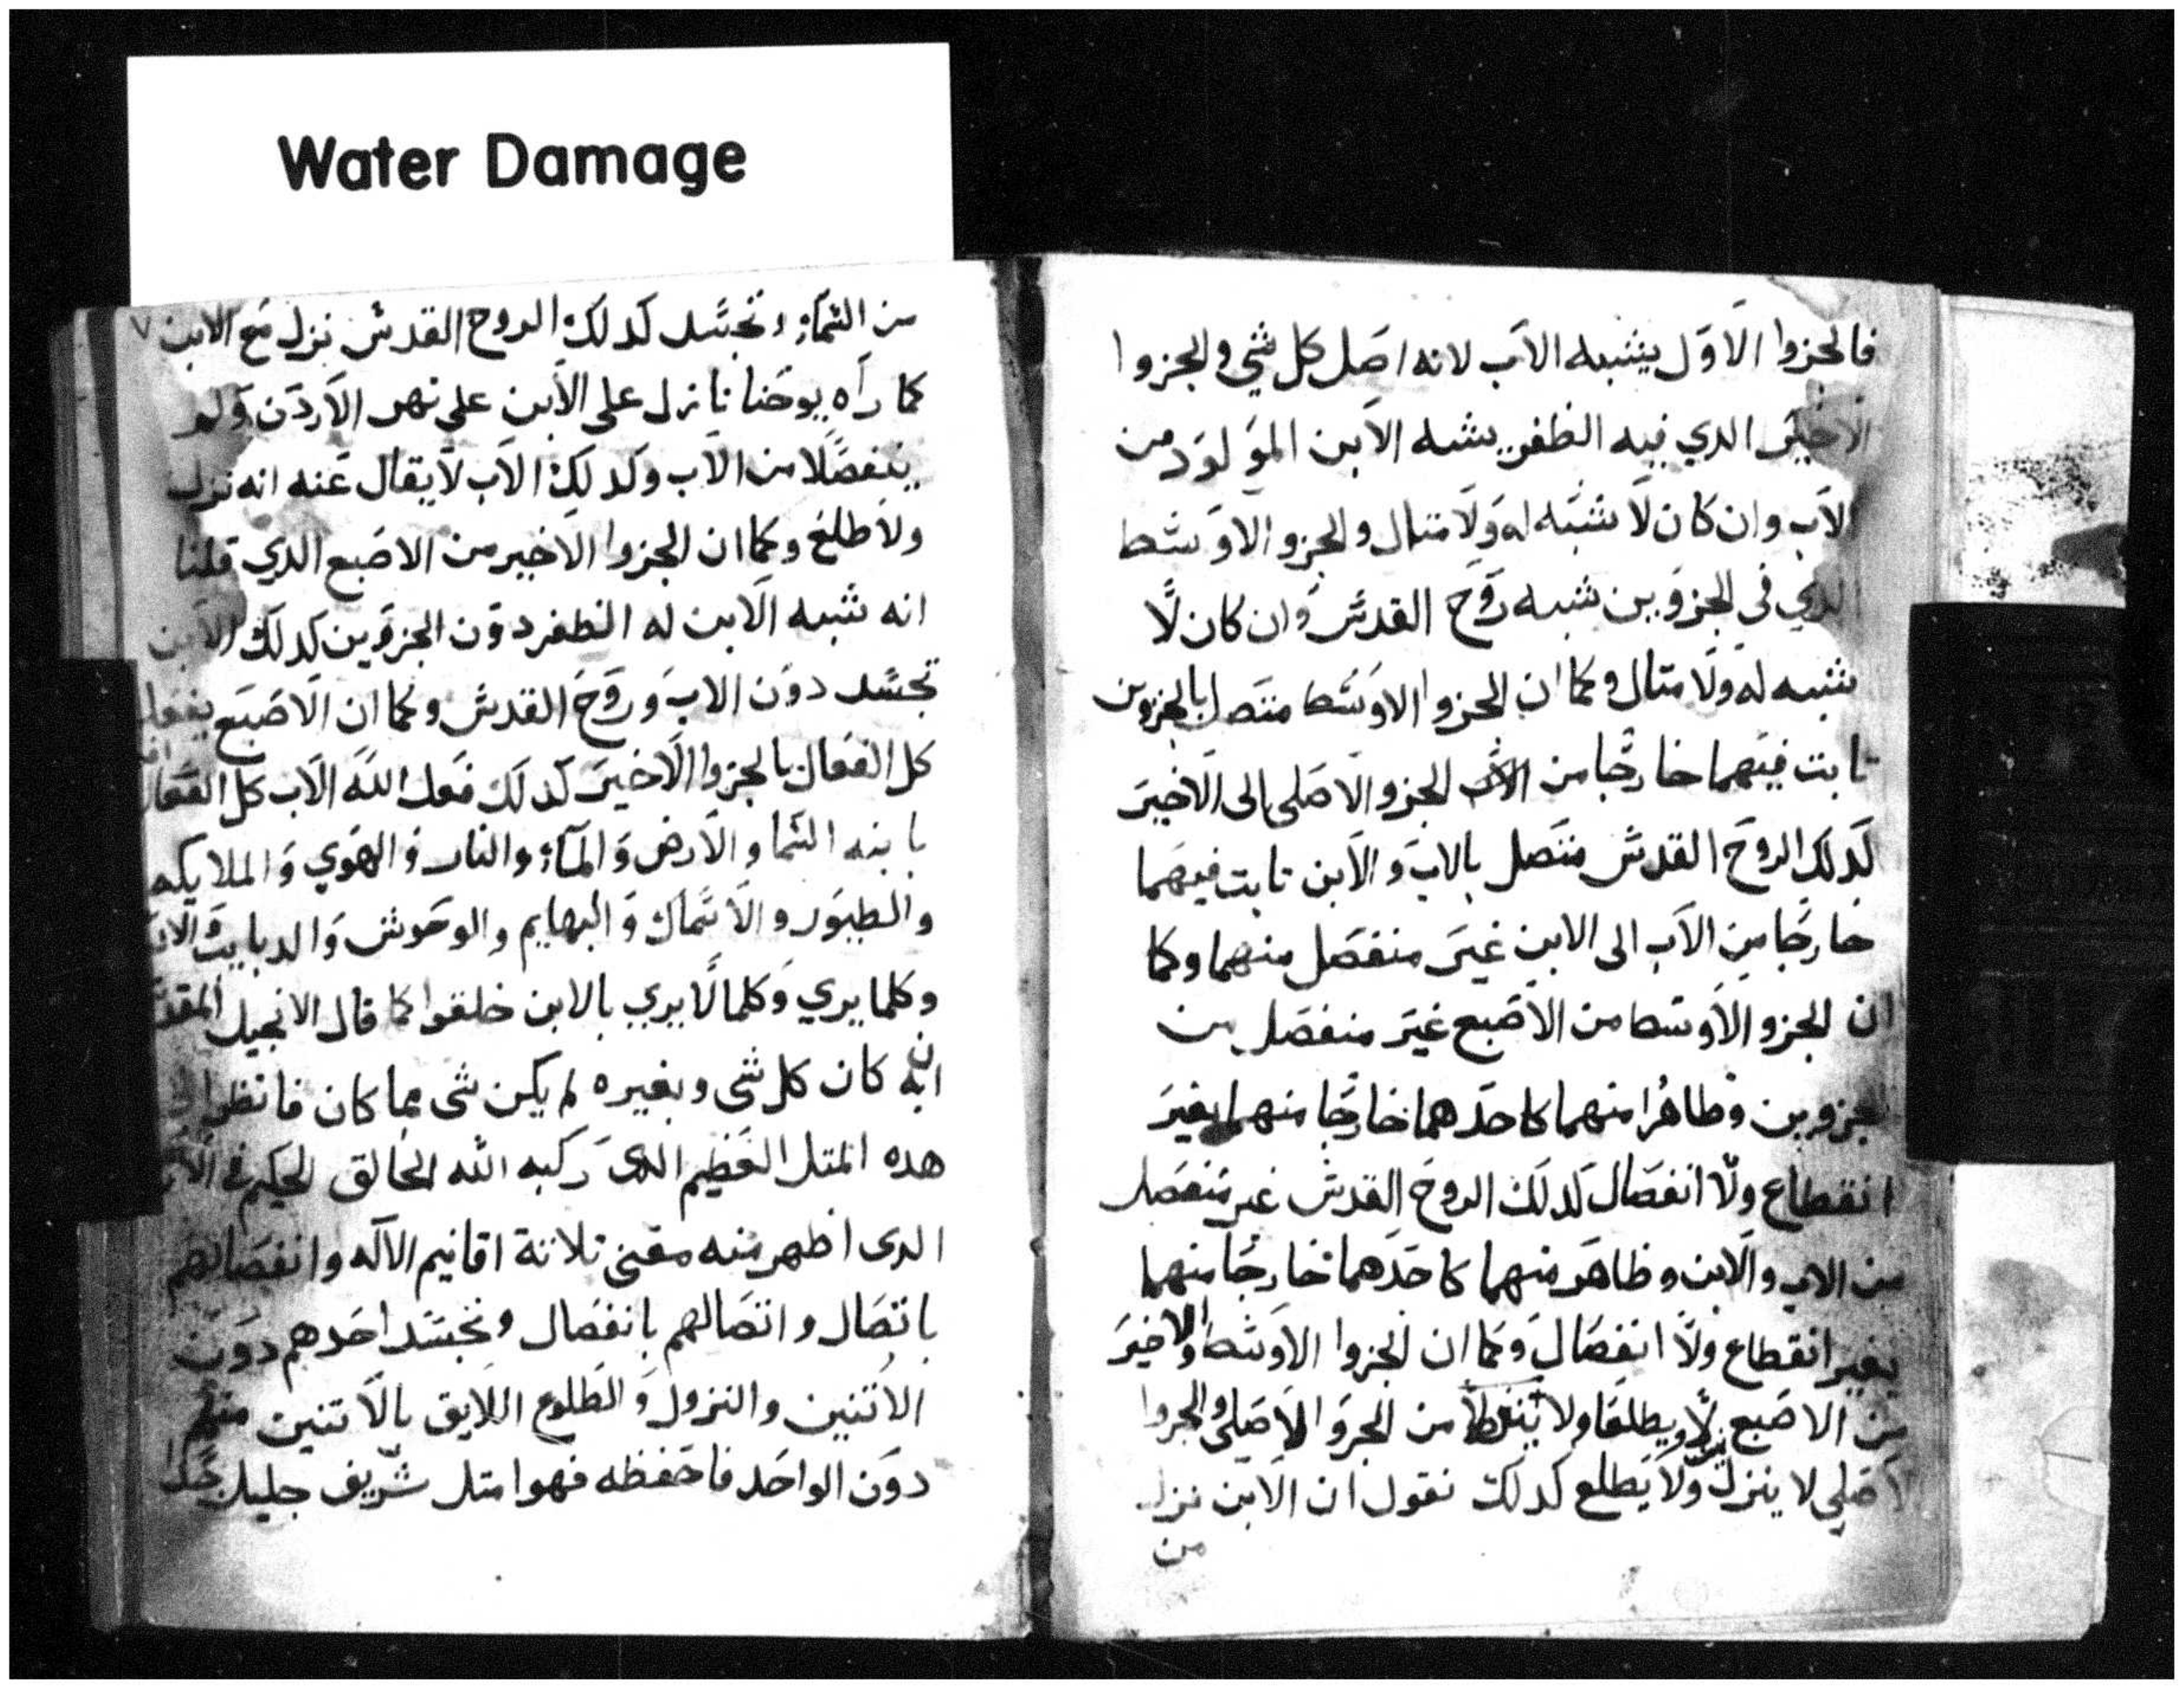 Water Damage
فالجزوا الاول يشبه الاب لانه اصل كل شي والجزوا
الاخير الدي فيه الظفر يشبه الابن المولود من
الاب وان كان لا شبه له ولا متال والجزو الاوسط
الدي في الجزوين شبه روح القدس وان كان لا
شبه له ولا متال وكما ان الجزوا الاوسط متصل بالجزوين
تابت فيهما خارجا من الجزو الاصلي الى الاخير
كدلك الروح القدس متصل بالاب والابن تابت فيهما
خارجا من الاب الى الابن غير منفصل منهما وكما
ان الجزو الاوسط من الاصبع غير منفصل من
الجزوين وظاهرا منهما كاحدهما خارجا منهما بغير
انقطاع ولا انفصال كدلك الروح القدس غير منفصل
من الاب والابن وظاهر منهما كاحدهما خارجا منهما
بغير انقطاع ولا انفصال وكما ان الجزوا الاوسط والاخير
من الاصبع ينزلا ويطلعا ولا من الجزو الاصلي والجزوا
الاصلي لا ينزل ولا يطلع كدلك نقول ان الابن نزل
من
٧
من السماء وتجسد كدلك الروح القدس نزل مع الابن
كما راه يوحنا نازل على الابن على نهر الاردن ولم
ينفصلا من الاب وكدلك الاب لا يقال عنه انه نزل
ولا طلع وكما ان الجزوا الاخير من الاصبع الدي قلنا
انه شبه الابن له الظفر دون الجزوين كدلك الابن
تجسد دون الاب وروح القدس وكما ان الاصبع يفعل
كل الفعال بالجزوا الاخير كدلك فعل الله الاب كل الفعال
بابنه السما والارض والماء والنار والهوي والملايكه
والطيور والاسماك والبهايم والوحوش والدبابيت
وكلما يري وكلما لا يري بالابن خلقوا كما قال الانجيل المقدس
ان به كان كل شي وبغيره لم يكن شي مما كان فانظروا الى
هده المتل العظيم الدى ركبه الله الخالق الحكيم في
الدى اظهر منه معنى تلاتة اقانيم الاله وانفصالهم
باتصال واتصالهم بانفصال وتجسد احدهم دون
الاتنين والنزول والطلوع اللايق بالاتنين منهم
دون الواحد فاحفظه فهوا متل شريف جليل جدا